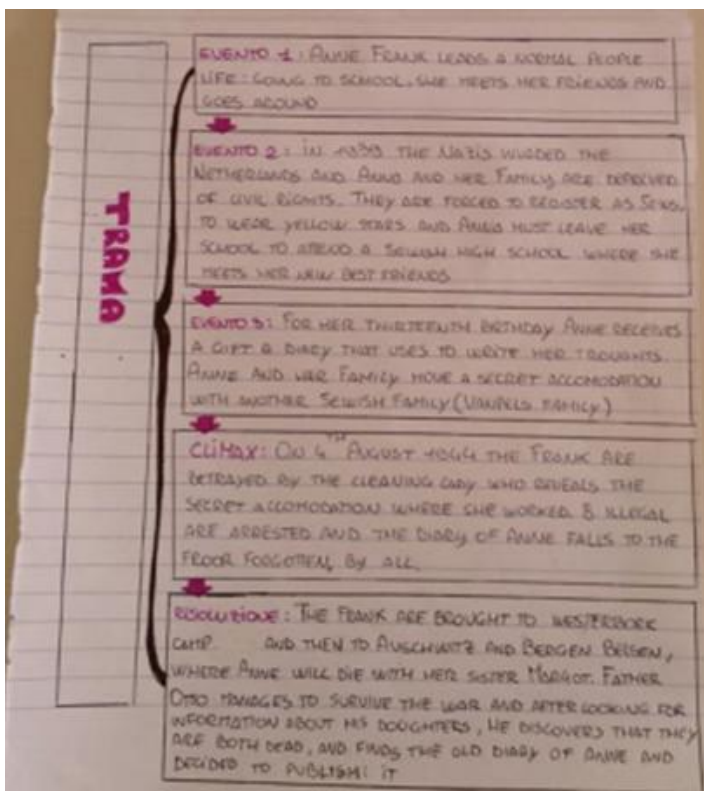 TRAMA
EVENTO 1: ANNE FRANK LEADS A NORMAL PEOPLE
LIFE: GOING TO SCHOOL, SHE MEETS HER FRIENDS AND
GOES AROUND
EVENTO 2: IN 1939 THE NAZIS INVADED THE
NETHERLANDS AND ANNE AND HER FAMILY ARE DEPRIVED
OF CIVIL RIGHTS. THEY ARE FORCED TO REGISTER AS JEWS,
TO WEAR YELLOW STARS AND ANNE MUST LEAVE HER
SCHOOL TO ATTEND A JEWISH HIGH SCHOOL WHERE SHE
MEETS HER NEW BEST FRIENDS
EVENTO 3: FOR HER THIRTEENTH BIRTHDAY ANNE RECEIVES
A GIFT A DIARY THAT USES TO WRITE HER TOUGHTS.
ANNE AND HER FAMILY MOVE A SECRET ACCOMODATION
WITH ANOTHER JEWISH FAMILY (VANPELS FAMILY)
CLIMAX: ON 4TH AUGUST 1944 THE FRANK ARE
BETRAYED BY THE CLEANING LADY WHO REVEALS THE
SECRET ACCOMODATION WHERE SHE WORKED. 8 ILLEGAL
ARE ARRESTED AND THE DIARY OF ANNE FALLS TO THE
FROOR FORGOTTEN, BY ALL.
RISOLUZIONE: THE FRANK ARE BROUGHT TO WESTERBORK
CAMP. AND THEN TO AUSCHWITZ AND BERGEN BELSEN,
WHERE ANNE WILL DIE WITH HER SISTER MARGOT. FATHER
OTTO MANAGES TO SURVIVE THE WAR AND AFTER LOOKING FOR
INFORMATION ABOUT HIS DOUGHTERS, HE DISCOVERS THAT THEY
ARE BOTH DEAD, AND FINDS THE OLD DIARY OF ANNE AND
DECIDED TO PUBLISH IT